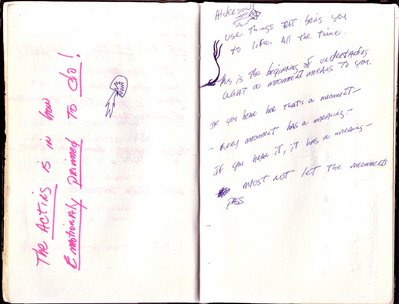 The Acting is in how
Emotionally primed to do!
use things that bring you
to life. All the time.
This is the beginning of understanding
what a moment means to you.
If you hear her that's a moment -
- Every moment has a meaning -
If you hear it, it has a meaning -
must not let the moments
pass